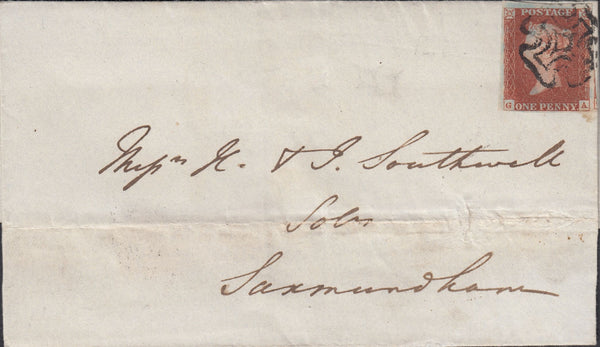 POSTAGE
ONE PENNY
G A
Messrs H. & J. Southwell
Solrs
Saxmundham